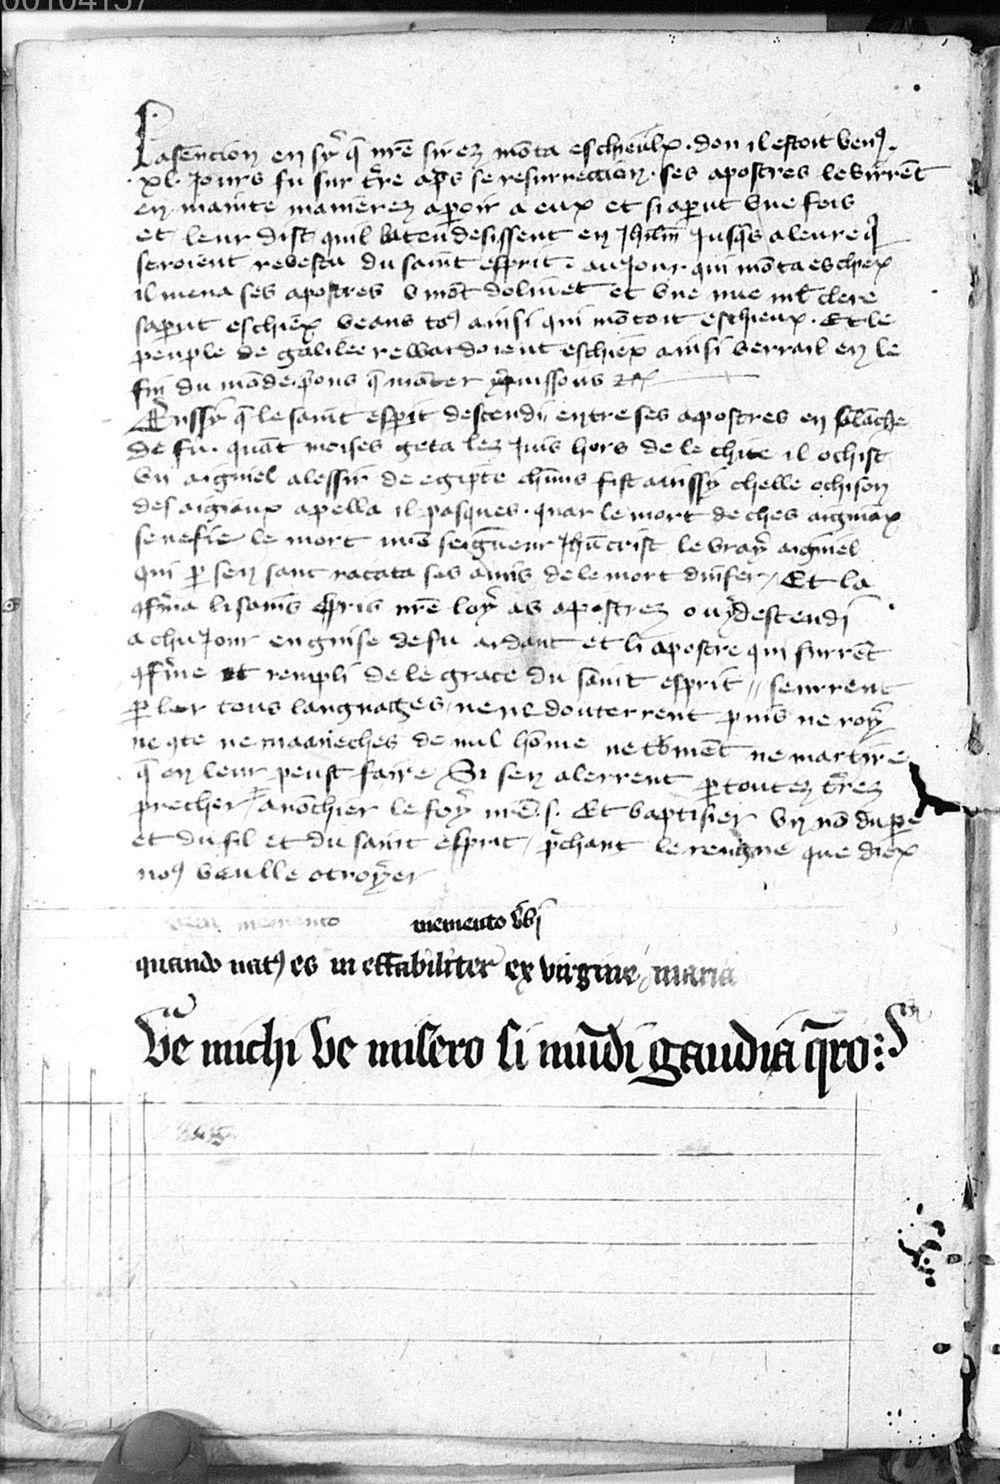 00104137
Lasencion en sy̾ q̄ nr̄e sirez mōta eschieulx . don il estoit venꝰ .
xl. Jours fu sur t̾re ap̄s se resurrection . ses apostres le virrēt
en mainte manierez aparoir a eux et si aparut vne fois
et leur dist quil latendesissent en Jhrlm̄ Jusq̄s a leure q̄
seroient revestu du saint esprit . au Jour qui mōta eschiex
il mena ses apostres v mōt doliuet et vne nue ml̄t clere
saparut eschiex veans toꝰ ainsi qui mōtoit eschieux . Et le
peuple de galilee rewardoient eschiex ainsi verrail en le
fin du mōde . prons q̄ mōter puissons
Aussy q̄ le saint esp̄it descendi entre ses apostres en
de fu . quāt moises geta lez Juis hors de le chite il ochist
vn aigniel alessir de egipte fist aussy chelle ochison
des aigniaux apella il pasques . quar le mort de ches aigniax
senefie le mort nr̄e seigneur Jhūcrist le vray aigniel
qui p̱ sen sanc racata ses amis de le mort dinfer / Et la
ꝯf̾ma li sains espris nr̄e loy as apostrez descendi
a chu Jour en guise de fu ardant et li apostre qui furrēt
ꝯf̾me et rempli de le grace du saint esprit // seurrent
p̱ler tous languages / ne ne douterrent puis ne roy
ne ꝯte ne maneches de nul hōme ne tormēt ne martire
q̄ en leur peust faire / Si sen alerrent p̱ toutez t̾rez
precher / anōchier le foy nr̄e .s. Et baptisier vn nō du pe
et du fil et du saint esprit / p̄chant le rengne que diex
noꝰ veulle otroyer
memento memento v̄bi
quando natꝰ es in effabiliter ex virgine maria
Ve michi ve misero si mūdi gaudia q̄ro :